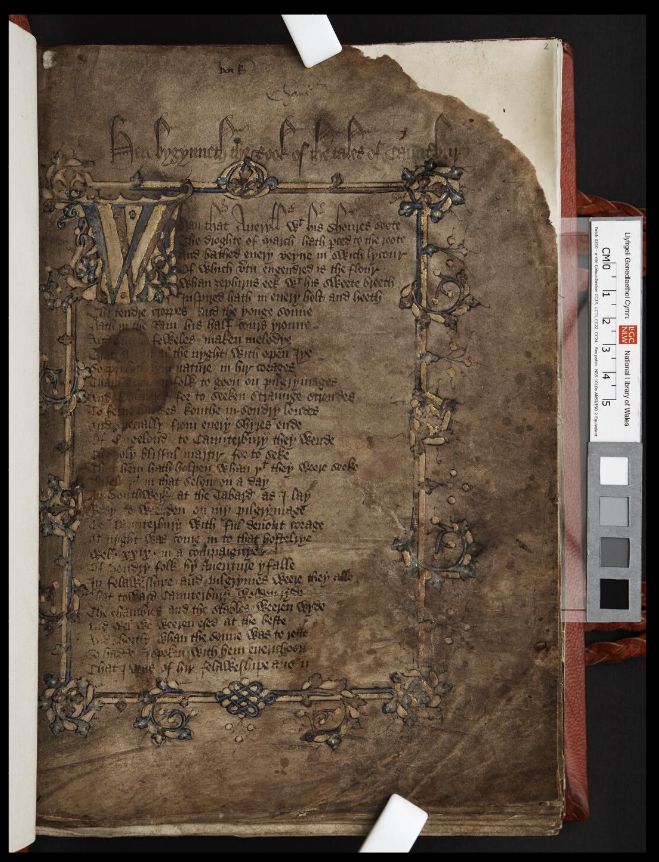 2
Here bygynneth the Book of the tales of Caunterbury
Whan that Aueryll wt his shoures soote
The droghte of March hath perced to the roote
And bathed euery veyne in swich lycour
Of which vertu engendred is the flour
Whan zephirus eek wt his sweete breeth
Inspired hath in euery holt and heeth
The tendre croppes and the yonge sonne
Hath in the Ram his half cours yronne
And foweles maken melodye
That the nyght with open Iye
So priketh nature in hir corages
folk to goon on pilgrymages
And for to seeken straunge strondes
To ferne halwes kouthe in sondry londes
And specially from euery shyres ende
Of Engelond to Caunterbury they wende
The holy blisful martir for to seke
That hem hath holpen whan þt they weere seeke
in that seson on a day
In Southwerk at the Tabard as I lay
Redy to weenden on my pilgrymage
To Caunterbury with ful deuout corage
At nyght was come in to that hostelrye
Wel .xxix. in a compaignye
Of sondry folk by auenture yfalle
In felaweshipe and pilgrymes weere they alle
That toward Caunterbury wolden ryde
The chambres and the stables weeren wyde
And wel we weeren esed at the beste
And shortly whan the sonne was to reste
So hadde I spoken with hem euerichoon
That I was of hir felaweshipe
Llyfrgell Genedlaethol Cymru
LlGC
NLW
National Library of Wales
CM 0 1 2 3 4 5